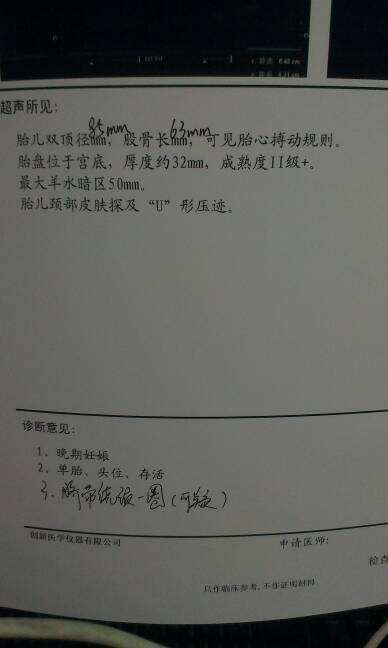 超声所见：
胎儿双顶径85mm mm，股骨长63mm mm，可见胎心搏动规则。
胎盘位于宫底，厚度约32mm，成熟度II级+。
最大羊水暗区50mm。
胎儿颈部皮肤探及“U”形压迹。
诊断意见：
1、晚期妊娠
2、单胎、头位、存活
3、脐带绕颈一圈（可疑）
创新医学仪器有限公司
申请医师：
检查
只作临床参考，不作证明材料